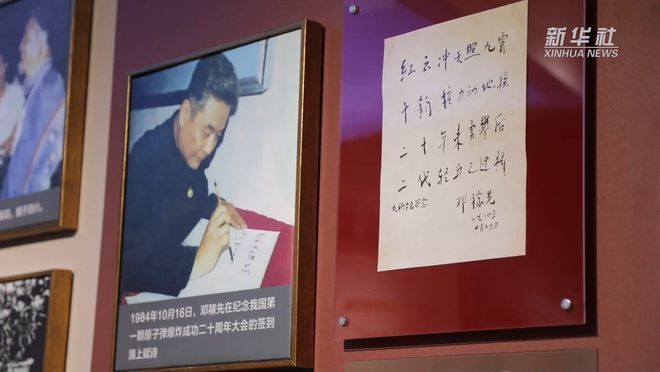 新华社
XINHUA NEWS
紅云冲天照九霄
千钧核力动地摇
二十年来勇攀后
二代轻舟已过桥
邓稼先
十月十六日
1984年10月16日,邓稼先在纪念我国第
一颗原子弹爆炸成功二十周年大会的签到
簿上赋诗